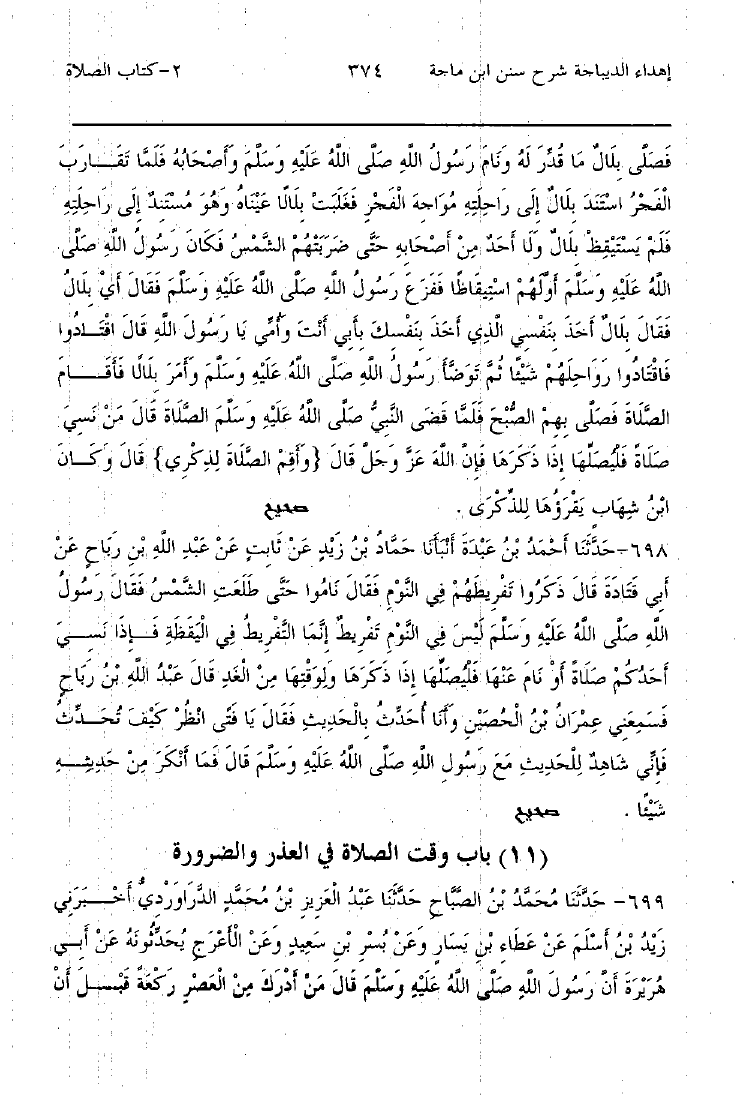 إهداء الديباجة شرح سنن ابن ماجة ٣٧٤ ٢-كتاب الصلاة
فَصَلَّى بِلَالٌ مَا قُدِّرَ لَهُ وَنَامَ رَسُولُ اللهِ صَلَّى اللهُ عَلَيْهِ وَسَلَّمَ وَأَصْحَابُهُ فَلَمَّا تَقَـارَبَ
الْفَجْرُ اسْتَنَدَ بِلَالٌ إِلَى رَاحِلَتِهِ مُوَاجِهَ الْفَجْرِ فَغَلَبَتْ بِلَالًا عَيْنَاهُ وَهُوَ مُسْتَنِدٌ إِلَى رَاحِلَتِهِ
فَلَمْ يَسْتَيْقِظْ بِلَالٌ وَلَا أَحَدٌ مِنْ أَصْحَابِهِ حَتَّى ضَرَبَتْهُمْ الشَّمْسُ فَكَانَ رَسُولُ اللهِ صَلَّى
اللهُ عَلَيْهِ وَسَلَّمَ أَوَّلَهُمْ اسْتِيقَاظًا فَفَزِعَ رَسُولُ اللهِ صَلَّى اللهُ عَلَيْهِ وَسَلَّمَ فَقَالَ أَيْ بِلَالُ
فَقَالَ بِلَالٌ أَخَذَ بِنَفْسِي الَّذِي أَخَذَ بِنَفْسِكَ بِأَبِي أَنْتَ وَأُمِّي يَا رَسُولَ اللهِ قَالَ اقْتَـادُوا
فَاقْتَادُوا رَوَاحِلَهُمْ شَيْئًا ثُمَّ تَوَضَّأَ رَسُولُ اللهِ صَلَّى اللهُ عَلَيْهِ وَسَلَّمَ وَأَمَرَ بِلَالًا فَأَقَـامَ
الصَّلَاةَ فَصَلَّى بِهِمْ الصُّبْحَ فَلَمَّا قَضَى النَّبِيُّ صَلَّى اللهُ عَلَيْهِ وَسَلَّمَ الصَّلَاةَ قَالَ مَنْ نَسِيَ
صَلَاةً فَلْيُصَلِّهَا إِذَا ذَكَرَهَا فَإِنَّ اللهَ عَزَّ وَجَلَّ قَالَ {وَأَقِمْ الصَّلَاةَ لِذِكْرِي} قَالَ وَكَـانَ
ابْنُ شِهَابٍ يَقْرَؤُهَا لِلذِّكْرَى . صحيح
٦٩٨-حَدَّثَنَا أَحْمَدُ بْنُ عَبْدَةَ أَنْبَأَنَا حَمَّادُ بْنُ زَيْدٍ عَنْ ثَابِتٍ عَنْ عَبْدِ اللهِ بْنِ رَبَاحٍ عَنْ
أَبِي قَتَادَةَ قَالَ ذَكَرُوا تَفْرِيطَهُمْ فِي النَّوْمِ فَقَالَ نَامُوا حَتَّى طَلَعَتِ الشَّمْسُ فَقَالَ رَسُولُ
اللهِ صَلَّى اللهُ عَلَيْهِ وَسَلَّمَ لَيْسَ فِي النَّوْمِ تَفْرِيطٌ إِنَّمَا التَّفْرِيطُ فِي الْيَقَظَةِ فَـإِذَا نَسِـيَ
أَحَدُكُمْ صَلَاةً أَوْ نَامَ عَنْهَا فَلْيُصَلِّهَا إِذَا ذَكَرَهَا وَلِوَقْتِهَا مِنْ الْغَدِ قَالَ عَبْدُ اللهِ بْنُ رَبَاحٍ
فَسَمِعَنِي عِمْرَانُ بْنُ الْحُصَيْنِ وَأَنَا أُحَدِّثُ بِالْحَدِيثِ فَقَالَ يَا فَتًى انْظُرْ كَيْفَ تُحَـدِّثُ
فَإِنِّي شَاهِدٌ لِلْحَدِيثِ مَعَ رَسُولِ اللهِ صَلَّى اللهُ عَلَيْهِ وَسَلَّمَ قَالَ فَمَا أَنْكَرَ مِنْ حَدِيثِـهِ
شَيْئًا . صحيح
(١١) باب وقت الصلاة في العذر والضرورة
٦٩٩- حَدَّثَنَا مُحَمَّدُ بْنُ الصَّبَّاحِ حَدَّثَنَا عَبْدُ الْعَزِيزِ بْنُ مُحَمَّدٍ الدَّرَاوَرْدِيُّ أَخْـبَرَنِي
زَيْدُ بْنُ أَسْلَمَ عَنْ عَطَاءِ بْنِ يَسَارٍ وَعَنْ بُسْرِ بْنِ سَعِيدٍ وَعَنْ الْأَعْرَجِ يُحَدِّثُونَهُ عَنْ أَبِـي
هُرَيْرَةَ أَنَّ رَسُولَ اللهِ صَلَّى اللهُ عَلَيْهِ وَسَلَّمَ قَالَ مَنْ أَدْرَكَ مِنْ الْعَصْرِ رَكْعَةً قَبْـلَ أَنْ